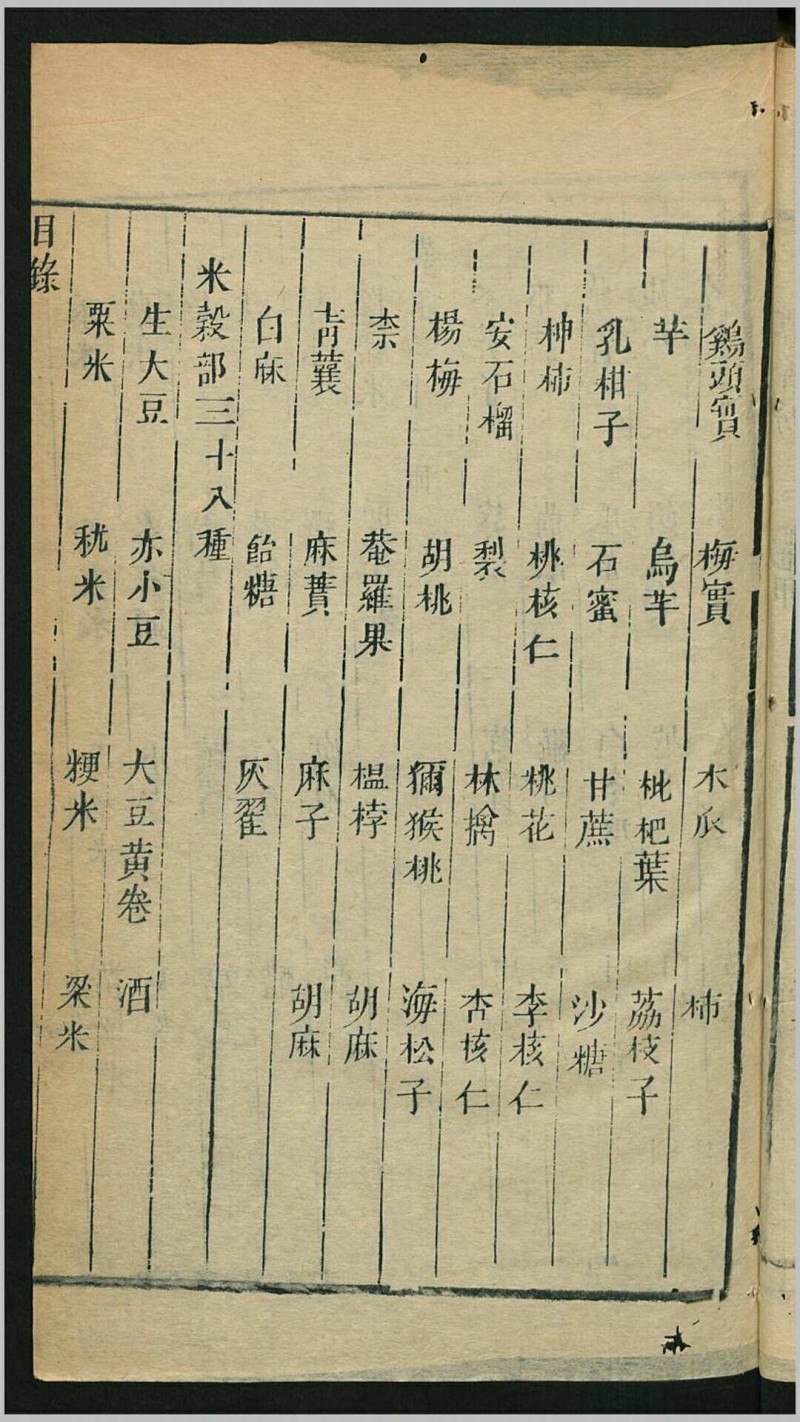 鷄頭實 梅實 木瓜 柿
芋 烏芋 枇杷葉 荔枝子
乳柑子 石蜜 甘蔗 沙糖
椑柿 桃核仁 桃花 李核仁
安石榴 梨 林擒 杏核仁
楊梅 胡桃 獼猴桃 海松子
柰 菴羅果 榲桲 胡麻
青蘘 麻蕡 麻子 胡麻
白麻 飴糖 灰藋
米穀部三十八種
生大豆 赤小豆 大豆黃卷 酒
粟米 秫米 粳米 粱米
目錄